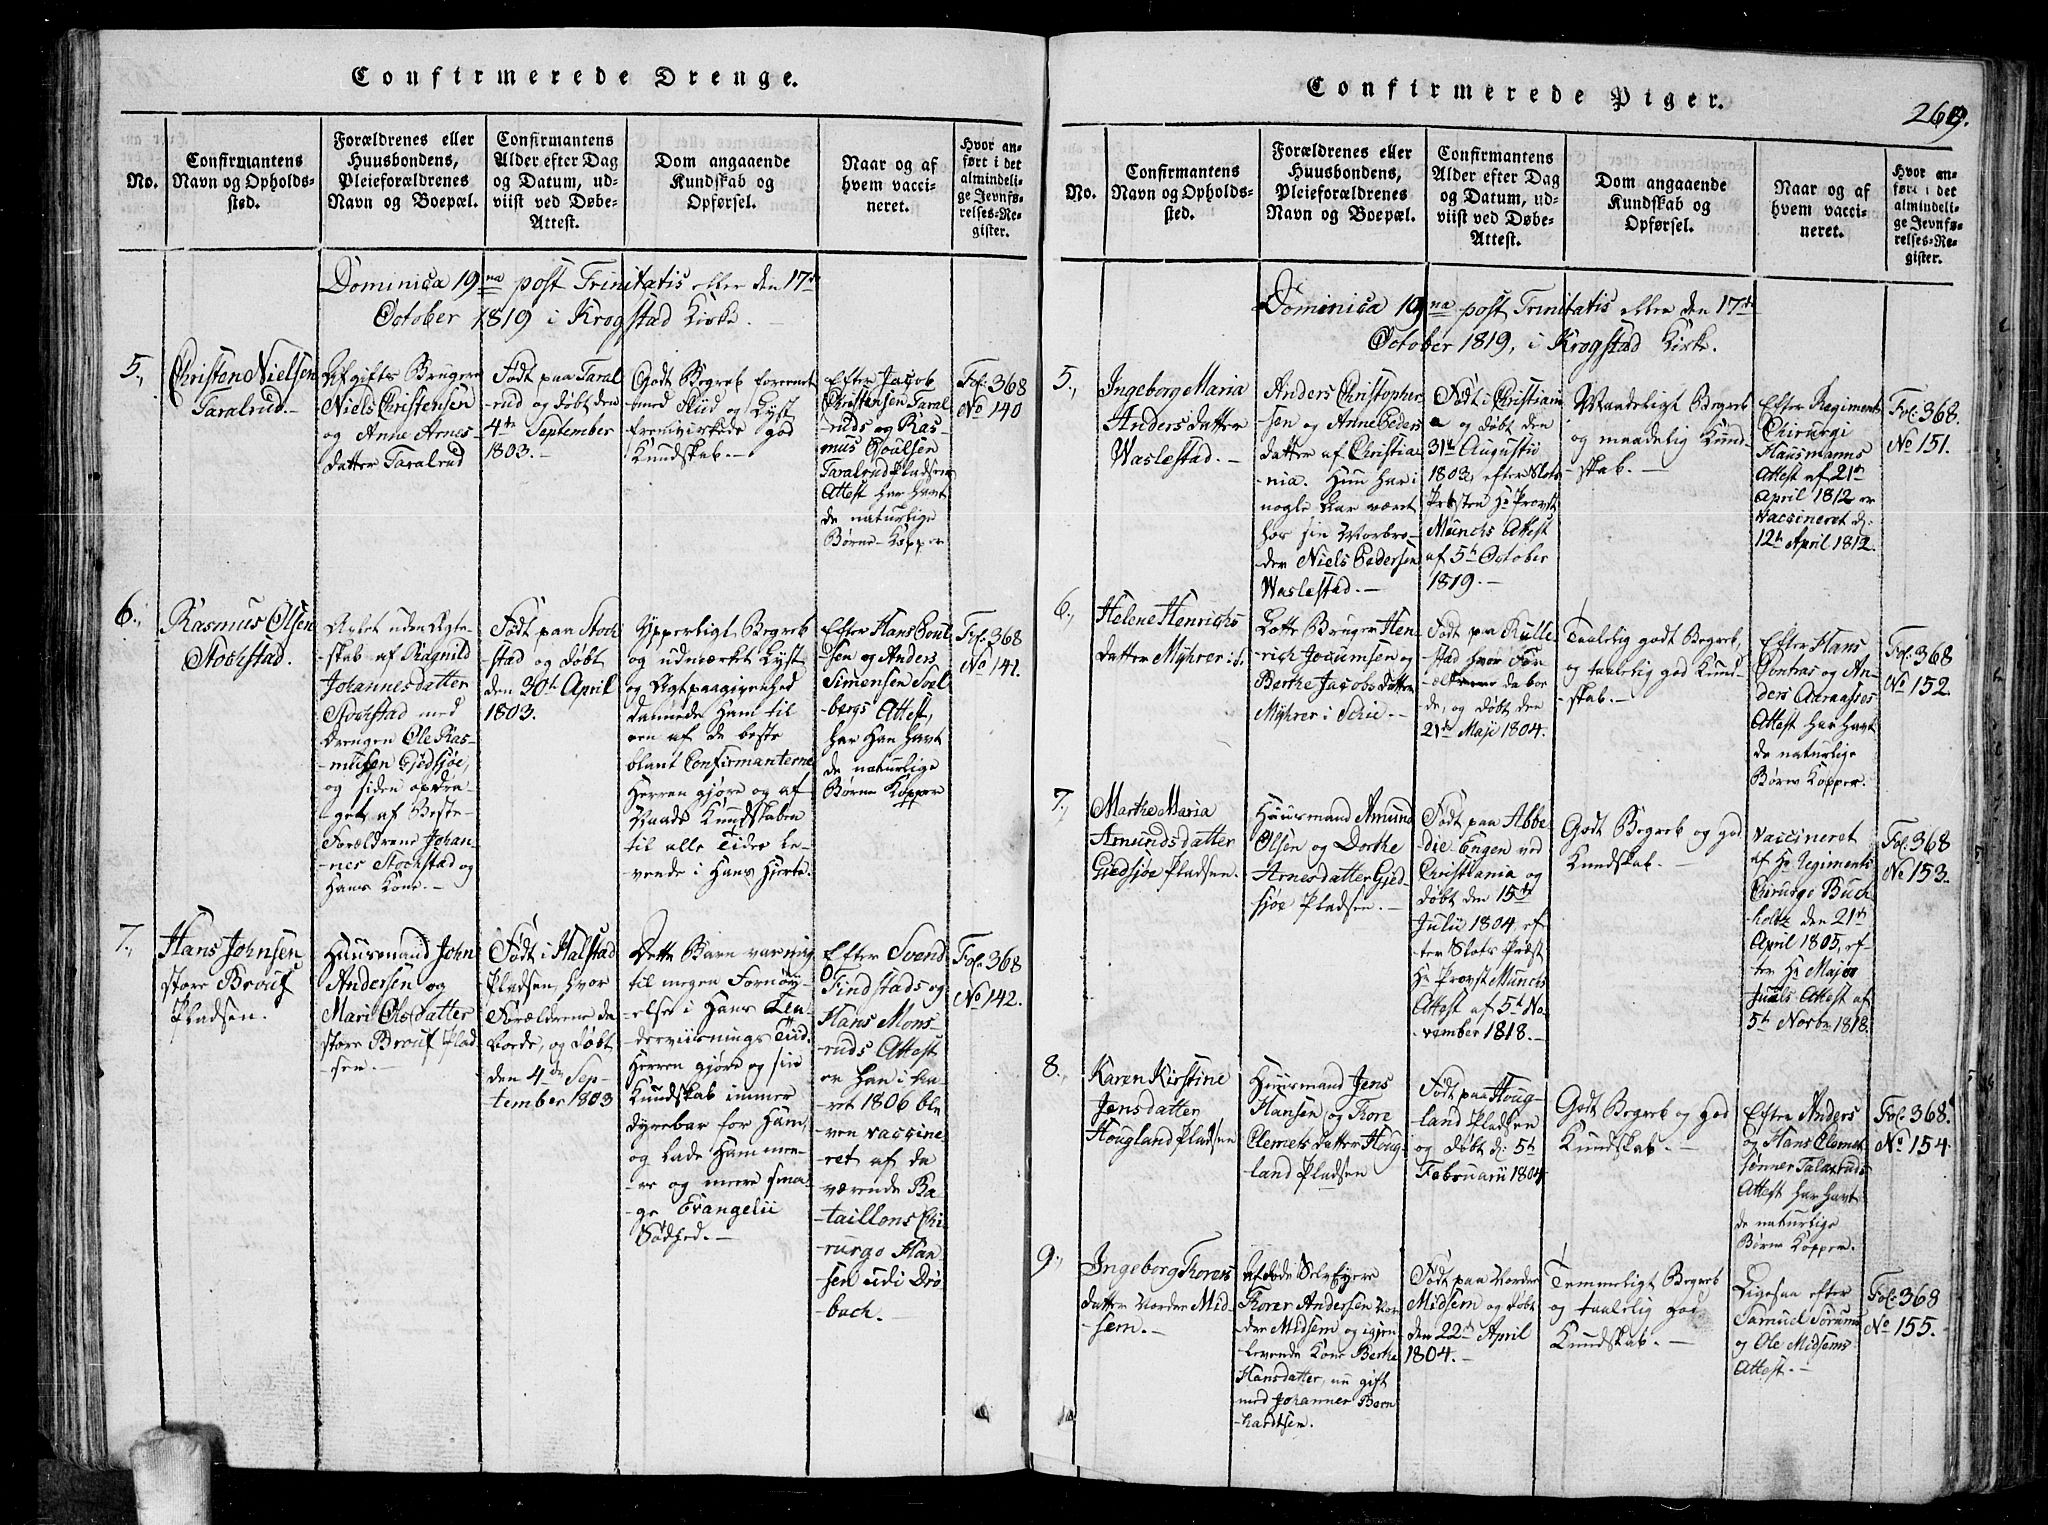 Confirmerede Drenge.
No.
Confirmantens
Navn og Opholds-
sted.
Forældrenes eller
Huusbondens,
Pleieforældrenes
Navn og Boepæl.
Confirmantens
Alder efter Dag
og Datum, ud-
viist ved Døbe-
Attest.
Dom angaaende
Kundskab og
Opførsel.
Naar og af
hvem vacci-
neret.
Hvor an-
ført i det
almindeli-
ge Jevnfø-
relses-Re-
gister.
Dominica 19na post Trinitatis eller den 17de
October 1819 i Krogstad Kirke.
5.,
Christen Nielsen
Taralrud.
Afgifts Bruger
Niels Christensen
og Anne Arnes-
datter Taralrud
Født paa Taral
-rud og døbt den
4de September
1803.
Godt Begreb forenet
med Fliid og Lyst
fremvirkede god
Kundskab.
Efter Jacob
Christensen Taral
-ruds og Ras-
mus Poulsen
Taralrud Pladsens
Attest har havt
de naturlige
Børne-Kopper
Fol: 368
No 140
6.,
Rasmus Olsen
Stochstad.
Avlet uden Ægte-
-skab af Ragnild
Johannesdatter
Stochstad med
Drengen Ole Ras-
musen Gjedsjøe,
og siden opdra-
-get af Beste-
Forældrene Johan-
-nes Stochstad og
Hans Kone.
Født paa Stoch
-stad og døbt
den 30te April
1803.
Ypperligt Begreb
og udmærket Lyst
og Agtpaagivenhed
dannede Ham til
een af de beste
blant Confirmanterne
Herren gjøre og af
Naade Kundskaben
til alle Tider le-
-vende i Hans Hjerte.
Efter Hans Poul
-sen og Anders
Simensen Soel
-bergs Attest,
har Han havt
de naturlige
Børne Kopper
Fol: 368
No 141.
7.,
Hans Johnsen
store Brouf
Pladsen.
Huusmand John
Andersen og
Mari Olsdatter
store Brouf Plad
-sen.
Født i Halstad
Pladsen, hvor
Forældrene da
boede, og døbt
den 4de Sep-
tember 1803
Dette Barn var mig
til megen Fornøy-
-else i Hans Un-
derviisnings Tiid.
Herren gjøre og sin
Kundskab immer
dyrebar for Ham,
og lade Ham mee-
-re og meere sma-
-ge Evangelii
Sødhed.
Efter Svend
Findstads og
Hans Mons-
ruds Attest
er han i Aa-
-ret 1806 ble
ven vaccine
-ret af da
værende Ba-
-taillons Chi-
-rurgo Han
sen udi Drø-
-bach.
Fol: 368
No 142.
Confirmerede Piger.
269.
No.
Confirmantens
Navn og Opholds-
sted.
Forældrenes eller
Huusbondens,
Pleieforældrenes
Navn og Boepæl.
Confirmantens
Alder efter Dag
og Datum, ud-
viist ved Døbe-
Attest.
Dom angaaende
Kundskab og
Opførsel.
Naar og af
hvem vacci-
neret.
Hvor an-
ført i det
almindeli-
ge Jevnfø-
relses-Re-
gister.
Dominica 19na post Trinitatis eller den 17de
October 1819, i Krogstad Kirke.
5.,
Ingeborg Maria
Anders datter
Waslestad.
Anders Christopher
sen og Anne Peders
datter af Christia-
-nia. Hun har i
nogle Aar været
hos sin Morbro-
der Niels Pedersen
Waslestad.
Født i Christiani
a og døbt den
31te Augustii
1803, efter Slots
Præsten Hr Provst
Munchs Attest
af 5te October
1819.
Maadeligt Begreb
og maadelig Kund
-skab.
Efter Regiments
Chirurgi
Hausmanns
Attest af 21de
April 1812 er
vaccineret d:
12te April 1812.
Fol: 368.
No 151.
6.,
Helene Henrichs
datter Myhrer i S.
Lotte Bruger Hen
rich Jocumsen og
Berthe Jacobsdatter
Myhrer i Schie.
Født paa Kulle
stad hvor For-
ældrene da bo-
de, og døbt den
21de Maji 1804.
Taalelig godt Begreb,
og taalelig god Kund
-skab.
Efter Hans
Pontras og An-
ders Aaraasses
Attest har havt
de naturlige
Børne Kopper.
Fol: 368
No 152.
7.,
Marthe Maria
Amundsdatter
Gjedsjøe Pladsen.
Huusmand Amund
Olsen og Dorthe
Arnesdatter Gjed-
sjøe Pladsen.
Født paa Abbe
die Engen ved
Christiania og
døbt den 15de
Julii 1804, ef-
ter Slots Præst
Hr Provst Munchs
Attest af 5te No
-vember 1818.
Godt Begreb og god
Kundskab.
Vaccineret
af Hr Regiments
Chirurgo Buch
holtz den 21de
April 1805, ef-
ter Hr Major
Juuls Attest af
5te Novbr 1818.
Fol: 368
No 153.
8.,
Karen Kirstine
Jensdatter
Hougland Pladsen
Huusmand Jens
Hansen og Tore
Clemets datter Houg-
land Pladsen
Født paa Houg-
land Pladsen
og døbt d: 5te
Februarii 1804
Godt Begreb og god
Kundskab.
Efter Anders
og Hans Clemet
sønner Talaxruds
Attest har havt
de naturlige
Børne Kopper.
Fol: 368.
No 154.
9.,
Ingeborg Thores
datter Norder Mid-
sem.
Afdøde Selv Eyere
Thorer Andersen Nor
der Midsem og igjen
levende Kone Berthe
Hansdatter, nu gift
med Johannes Bern
hardtsen.
Født paa Norder
Midsem og døbt
den 22de April
1804.
Temmeligt Begreb
og taalelig god
Kundskab.
Ligesaa efter
Samuel Sørums
og Ole Midsems
Attest.
Fol: 368
No 155.